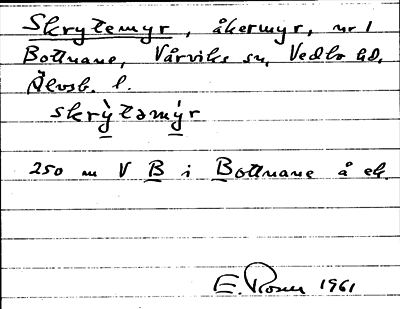 Skrytemyr, åkermyr, nr 1
Bottnane, Vårviks sn, Vedbo hd,
Älvsb. l.
skrỳtəmýr
250 m V B i Bottnane å ek.
E. Rosén 1961